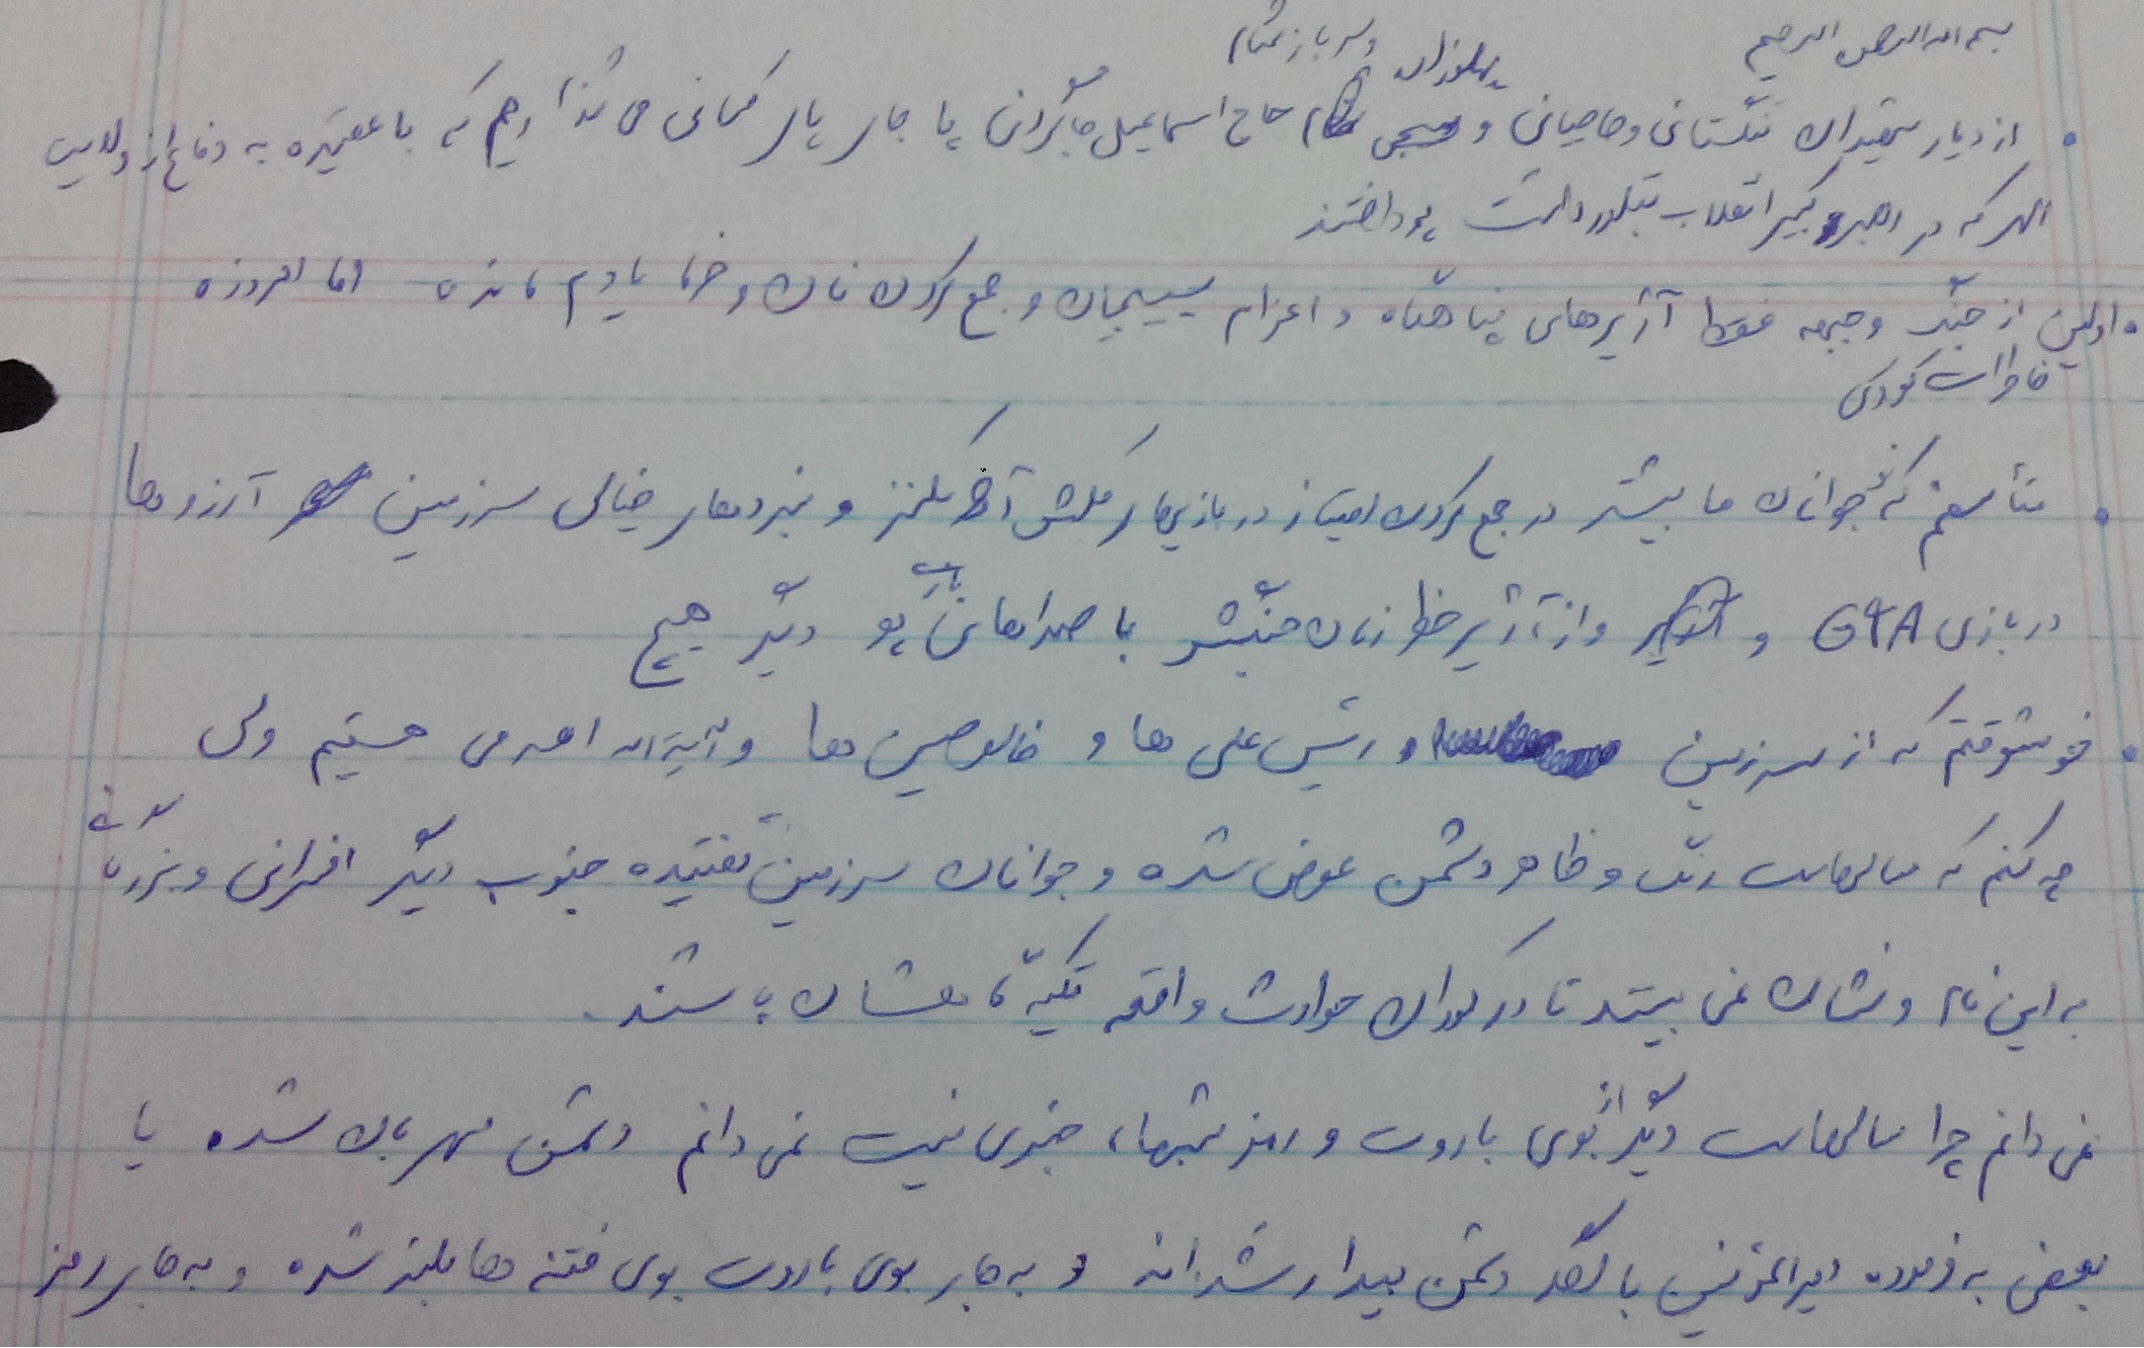 بسم الله الرحمن الرحیم
پهلوزان و سرباز
از دیار شهیدان تنگستانی و حاجیانی و حاج اسماعیل جاگرانی پا جای پای کسانی می گذاریم که با عقیده به دفاع از ولایت
الهی که در رهبر کبیر انقلاب تبلور داشت پرداختند
اولین از جنگ و جبهه فقط آژیرهای پناهگاه و اعزام بسیجیان و جمع کردن نان و خرما یادم مانده اما امروزه
خاطرات کودکی
متأسفم که نوجوانان ما بیشتر در جمع کردن امتیاز در بازیهای کلش آف کلنز و نبردهای خیالی سرزمین آرزوها
در بازی GTA و و از آژیر خطر زمان جنگش با صداهای پو دیگر هیچ
خوشوقتم که از سرزمین و رئیس علی ها و خالوحسین ها و آیه الله اهرمی هستیم ولی
چه کنم که سالهاست رنگ و ظاهر دشمن عوض شده و جوانان سرزمین تفتیده جنوب دیگر افسرانی و بزرگانی
به این نام و نشان نمی بینند تا در کوران حوادث واقعه تکیه گاهشان باشند.
نمی دانم چرا سالهاست دیگر از بوی باروت و رمز شبها، خبری نیست نمی دانم دشمن مهربان شده یا
بعضی به فرموده امیرالمؤمنین با لگد دشمن بیدار شده اند و به جای بوی باروت بوی فتنه ها بلند شده و به جای رمز